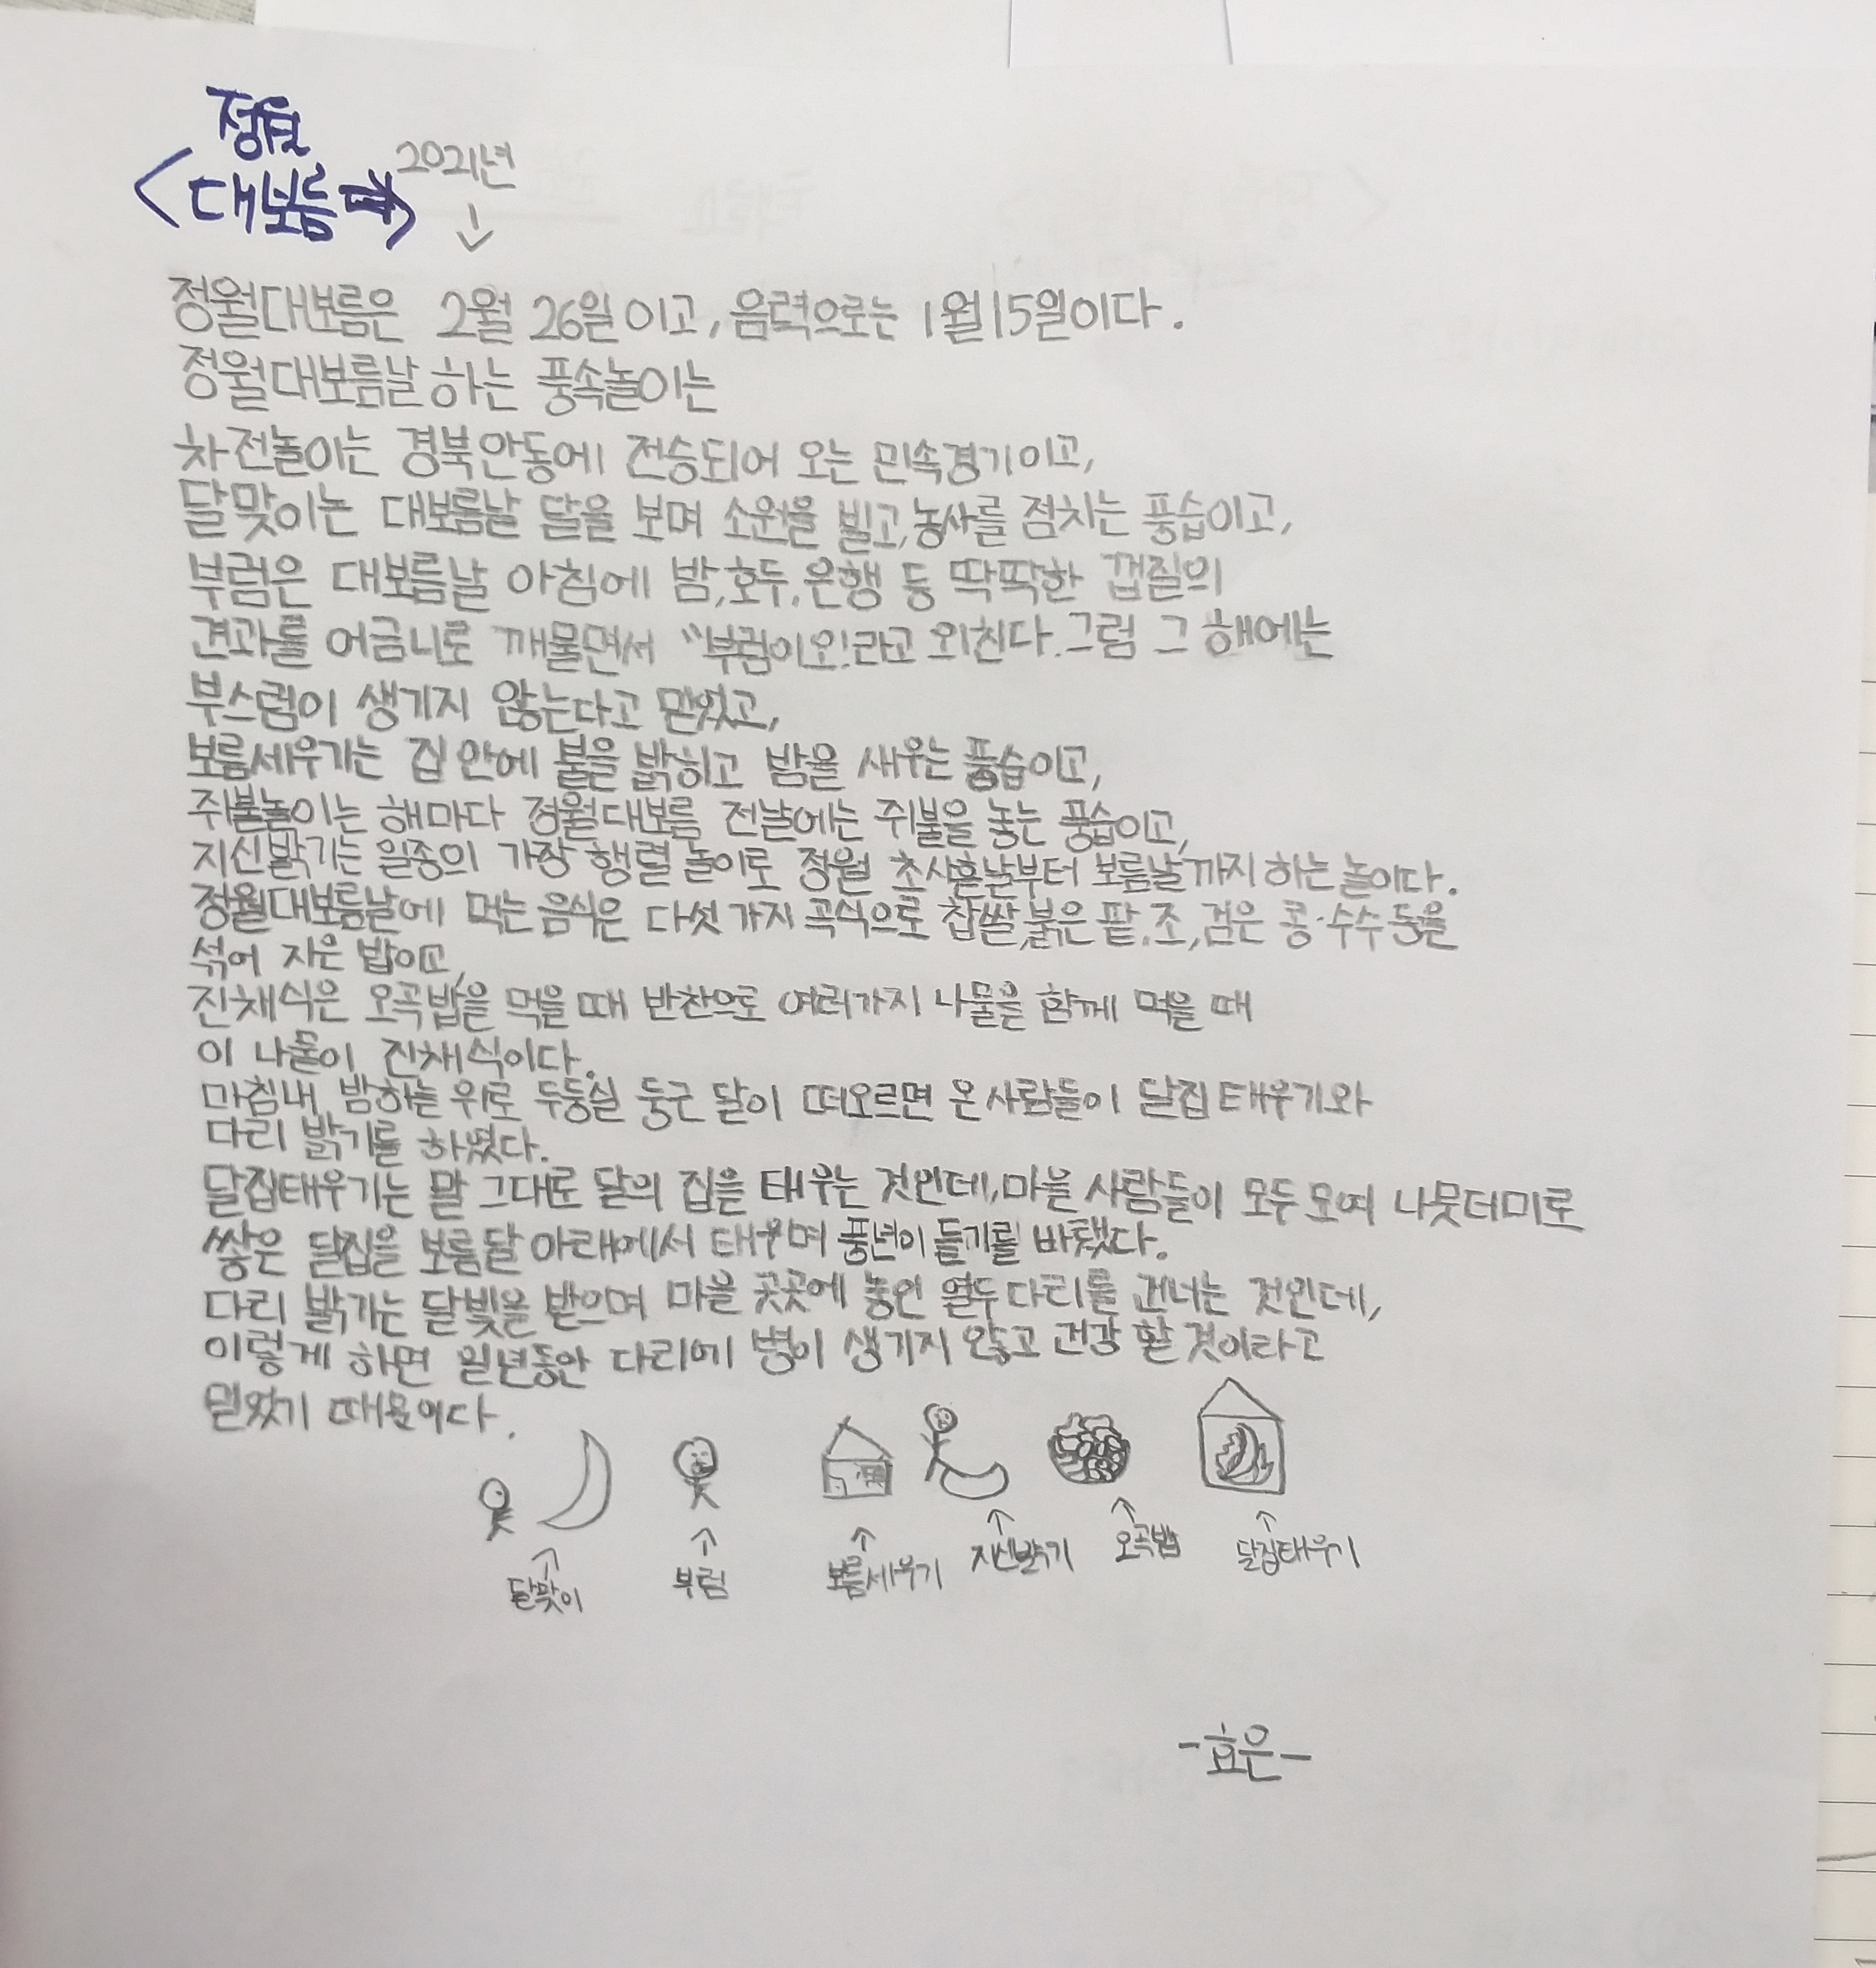 정월
<대보름>
2021년
↓
정월대보름은 2월 26일이고, 음력으로는 1월15일이다.
정월대보름날 하는 풍속놀이는
차전놀이는 경북안동에 전승되어 오는 민속경기이고,
달맞이는 대보름날 달을 보며 소원을 빌고,농사를 점치는 풍습이고,
부럼은 대보름날 아침에 밤,호두,은행 등 딱딱한 껍질의
견과를 어금니로 깨물면서 "부럼이오!라고 외친다.그럼 그 해에는
부스럼이 생기지 않는다고 믿었고,
보름세우기는 집 안에 불을 밝히고 밤을 새우는 풍습이고,
쥐불놀이는 해마다 정월대보름 전날에는 쥐불을 놓는 풍습이고,
지신밝기는 일종의 가장 행렬 놀이로 정월 초사흗날부터 보름날까지 하는 놀이다.
정월대보름날에 먹는 음식은 다섯가지 곡식으로 찹쌀,붉은 팥,조,검은 콩·수수 등을
섞어 지은 밥이고,
진채식은 오곡밥을 먹을 때 반찬으로 여러가지 나물을 함께 먹을 때
이 나물이 진채식이다.
마침내 밤하늘 위로 두둥실 둥근 달이 떠오르면 온사람들이 달집 태우기와
다리 밝기를 하였다.
달집태우기는 말 그대로 달의 집을 태우는 것인데,마을 사람들이 모두 모여 나뭇더미로
쌓은 달집을 보름달 아래에서 태우며 풍년이 들기를 바랬다.
다리 밝기는 달빛을 받으며 마을 곳곳에 놓인 열두다리를 건너는 것인데,
이렇게 하면 일년동안 다리에 병이 생기지 않고 건강 할 것이라고
믿었기 때문이다.
↑ ↑ ↑ ↑ ↑ ↑
달맞이 부럼 보름세우기 지신밝기 오곡밥 달집태우기
-효은-